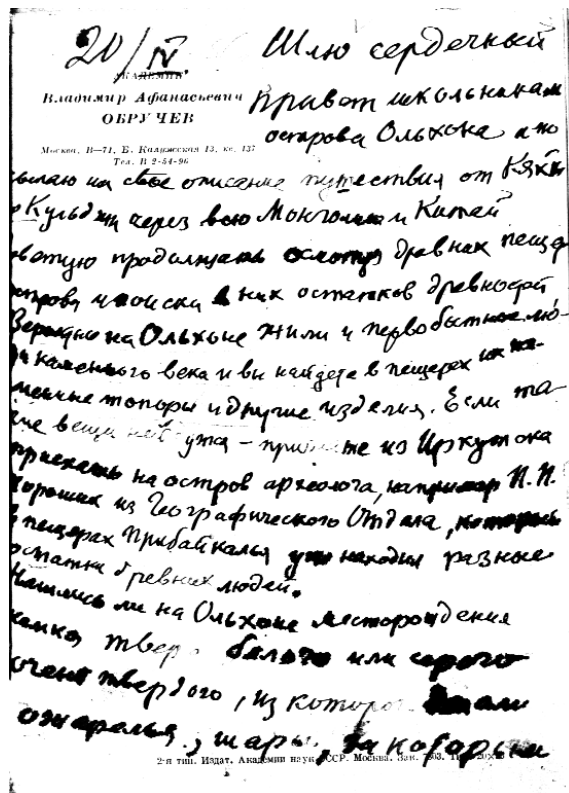 20/IV
Шлю сердечный
АКАДЕМИК
Владимир Афанасьевич
ОБРУЧЕВ
привет школьникам
острова Ольхона и по
Москва, В—71, Б. Калужская 13, кв. 137
Тел. В 2-54-96
сылаю им свое описание путешествия от Кяхты
до Кульджи через всю Монголию и Китай
Советую продолжать осмотр древних пещер
острова и поиски в них остатков древностей
Вероятно на Ольхоне жили и первобытные лю-
ди каменного века и вы найдете в пещерах их ка-
менные топоры и другие изделия. Если та-
кие вещи уже из Иркутска
приехать на остров археолога, например П.П.
Хороших из Географического Отдела, который
в пещерах Прибайкалья уже находил разные
остатки древних людей.
Нашлись ли на Ольхоне месторождения
камня белого или серого
очень твердого, из которого
ожерелья, шары, за которым
2-я тип. Издат. Академии наук СССР. Москва. Зак.